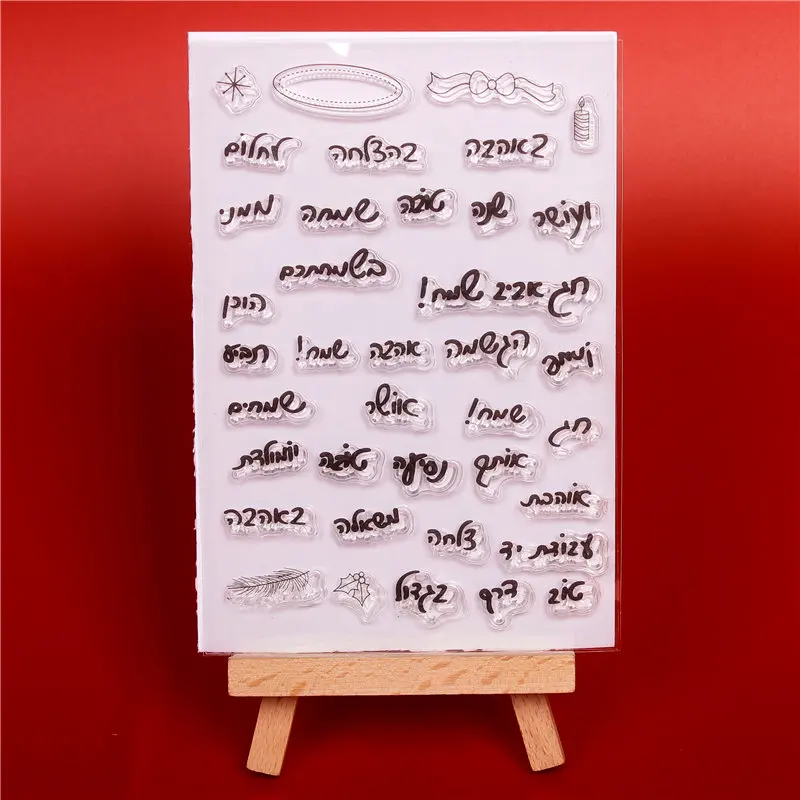 באהבה בהצלחה לחלום
ועושר שנה טובה שמחה ממני
בשמחתכם
חג אביב שמח! הוכן
הגשמה אהבה שמח! תביע
חג שמח! אושר שמחים
אותך נסיעה טובה יומולדת
אוהבת
משאלה באהבה
עבודת יד צלחה
טוב דרך בגדול